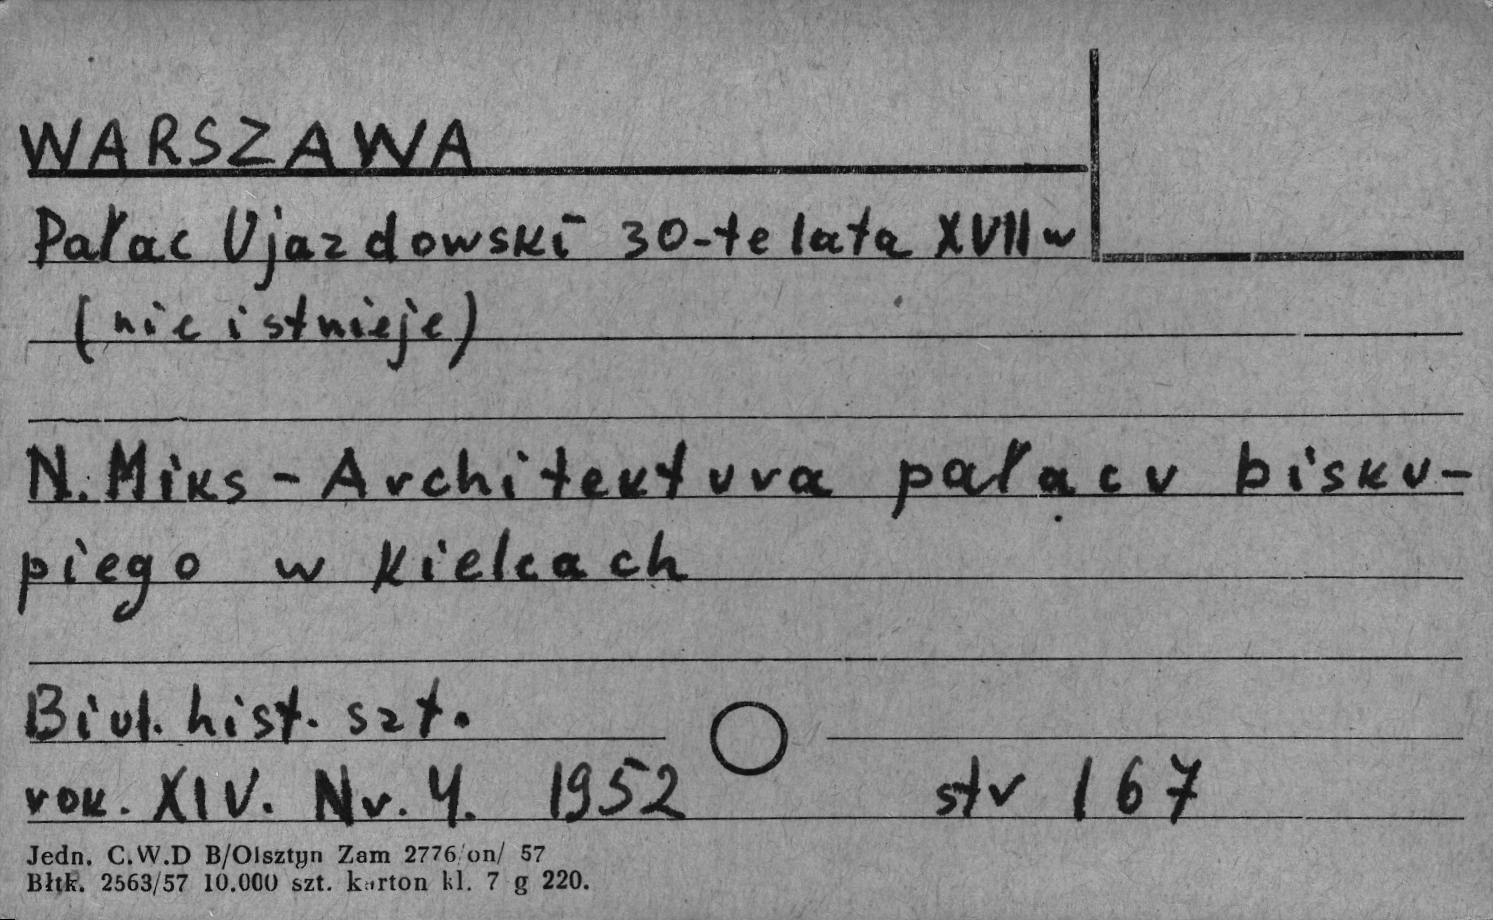 WARSZAWA
Pałac Ujazdowski 30-te lata XVII w
(nie istnieje)
N. Miks - Architektura pałacu bisku-
piego w Kielcach
Biul. hist. szt.
rok. XIV. Nr. 4. 1952 str 167
Jedn. C.W.D B/Olsztyn Zam 2776/on/ 57
Błtk. 2563/57 10.000 szt. karton kl. 7 g 220.